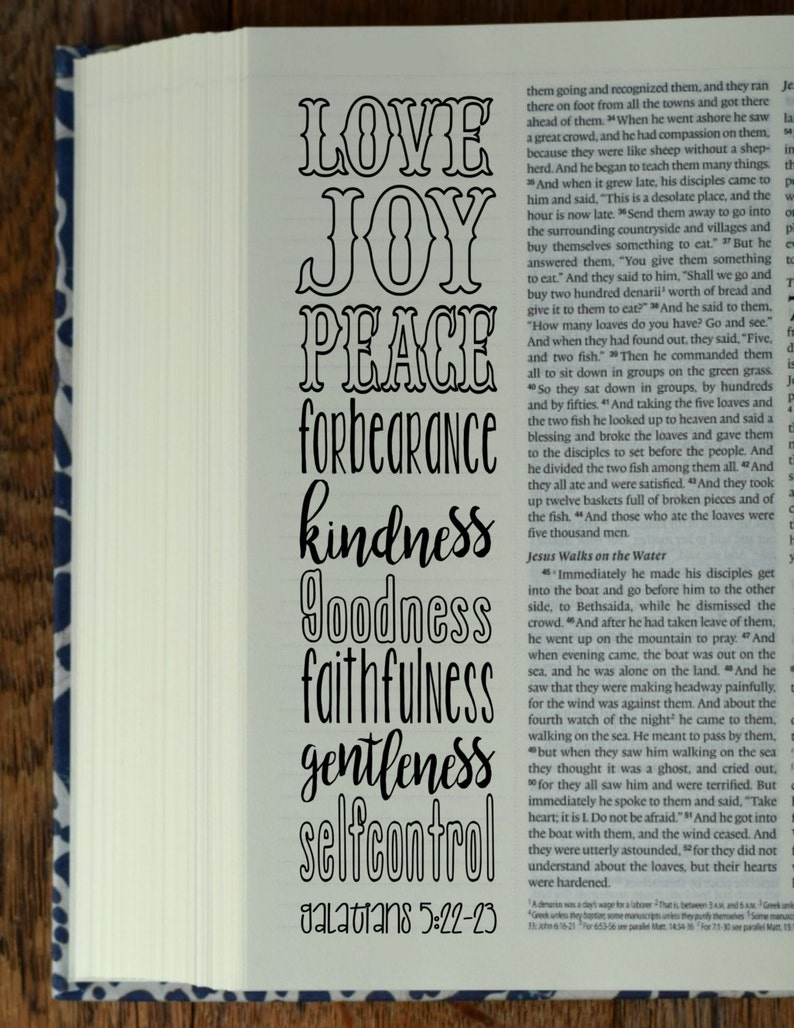 LOVE
JOY
PEACE
forbearance
kindness
goodness
faithfulness
gentleness
selfcontrol
galatians 5:22-23
them going and recognized them, and they ran
there on foot from all the towns and got there
ahead of them. 34 When he went ashore he saw
a great crowd, and he had compassion on them,
because they were like sheep without a shep-
herd. And he began to teach them many things.
35 And when it grew late, his disciples came to
him and said, "This is a desolate place, and the
hour is now late. 36 Send them away to go into
the surrounding countryside and villages and
buy themselves something to eat." 37 But he
answered them, "You give them something
to eat." And they said to him, "Shall we go and
buy two hundred denarii1 worth of bread and
give it to them to eat?" 38 And he said to them,
"How many loaves do you have? Go and see."
And when they had found out, they said, "Five,
and two fish." 39 Then he commanded them
all to sit down in groups on the green grass.
40 So they sat down in groups, by hundreds
and by fifties. 41 And taking the five loaves and
the two fish he looked up to heaven and said a
blessing and broke the loaves and gave them
to the disciples to set before the people. And
he divided the two fish among them all. 42 And
they all ate and were satisfied. 43 And they took
up twelve baskets full of broken pieces and of
the fish. 44 And those who ate the loaves were
five thousand men.
Jesus Walks on the Water
45 Immediately he made his disciples get
into the boat and go before him to the other
side, to Bethsaida, while he dismissed the
crowd. 46 And after he had taken leave of them,
he went up on the mountain to pray. 47 And
when evening came, the boat was out on the
sea, and he was alone on the land. 48 And he
saw that they were making headway painfully,
for the wind was against them. And about the
fourth watch of the night2 he came to them,
walking on the sea. He meant to pass by them,
49 but when they saw him walking on the sea
they thought it was a ghost, and cried out,
50 for they all saw him and were terrified. But
immediately he spoke to them and said, "Take
heart; it is I. Do not be afraid." 51 And he got into
the boat with them, and the wind ceased. And
they were utterly astounded, 52 for they did not
understand about the loaves, but their hearts
were hardened.
1 A denarius was a day's wage for a laborer 2 That is, between 3 A.M. and 6 A.M. 3 Greek
4 Greek unless they baptize; some manuscripts unless they purify themselves 5 Some
33; John 6:16-21 For 6:53-56 see parallel Matt. 14:34-36 For 7:1-30 see parallel Matt.